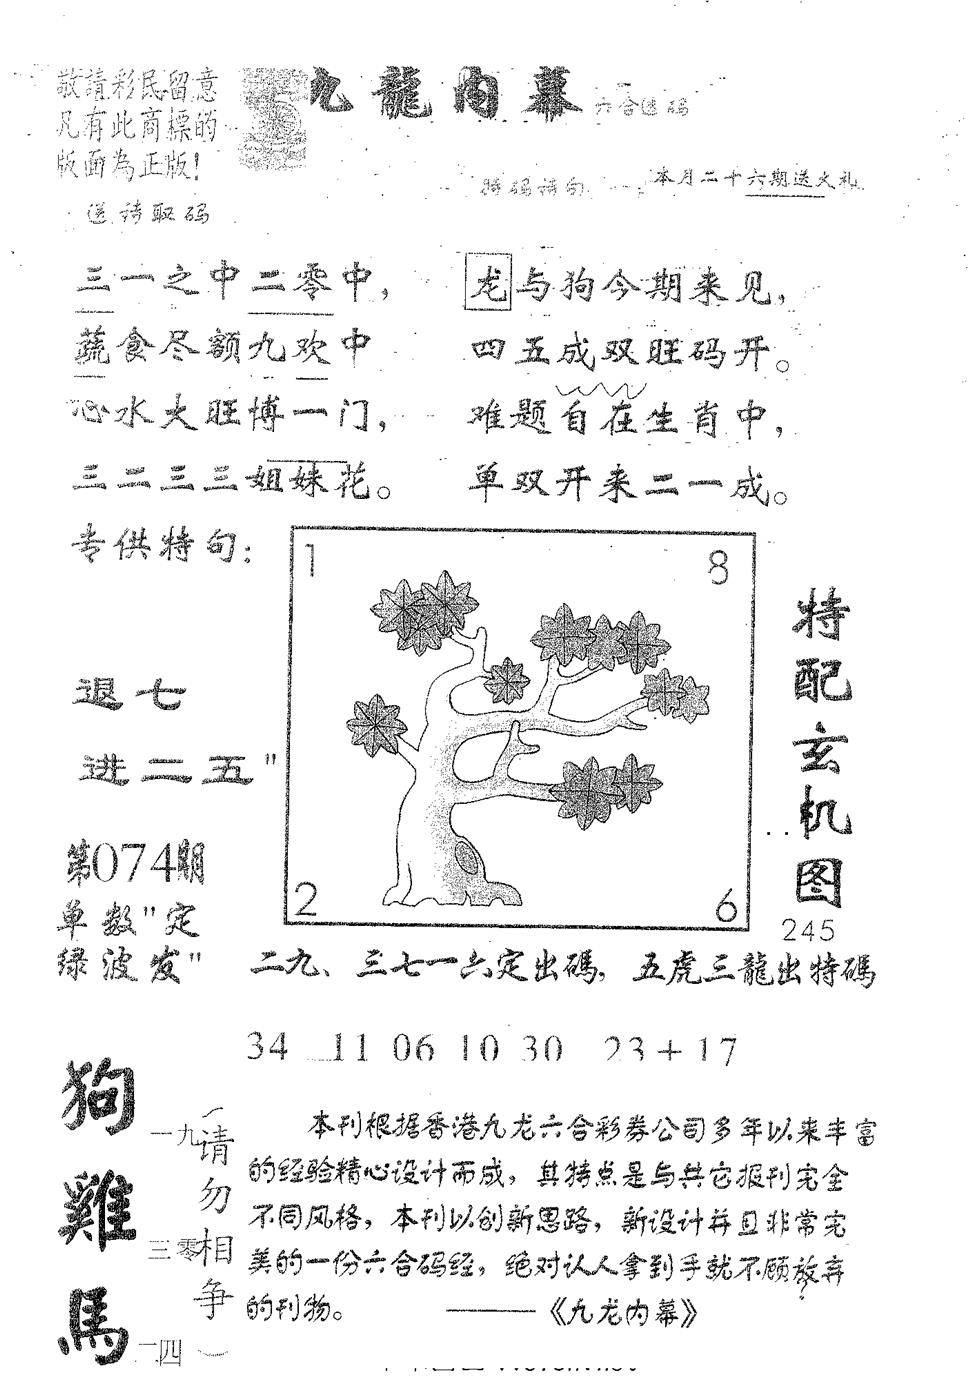 敬請彩民留意
凡有此商標的
版面為正版!
九龍内幕
六合透码
特码诗句
本月二十六期送火礼
送诗取码
三一之中二零中，
蔬食尽额九欢中
心水大旺博一门，
三二三三姐妹花。
龙与狗今期来见，
四五成双旺码开。
难题自在生肖中，
单双开来二一成。
专供特句：
退七
进二五"
第074期
单数"定
绿波发"
1
8
2
6
特配玄机图
245
二九、三七一六定出碼，五虎三龍出特碼
34 11 06 10 30 23+17
狗 一九
雞 三零
馬 二四
（请勿相争）
本刊根据香港九龙六合彩券公司多年以来丰富
的经验精心设计而成，其特点是与其它报刊完全
不同风格，本刊以创新思路，新设计并且非常完
美的一份六合码经，绝对认人拿到手就不顾放弃
的刊物。 ———《九龙内幕》